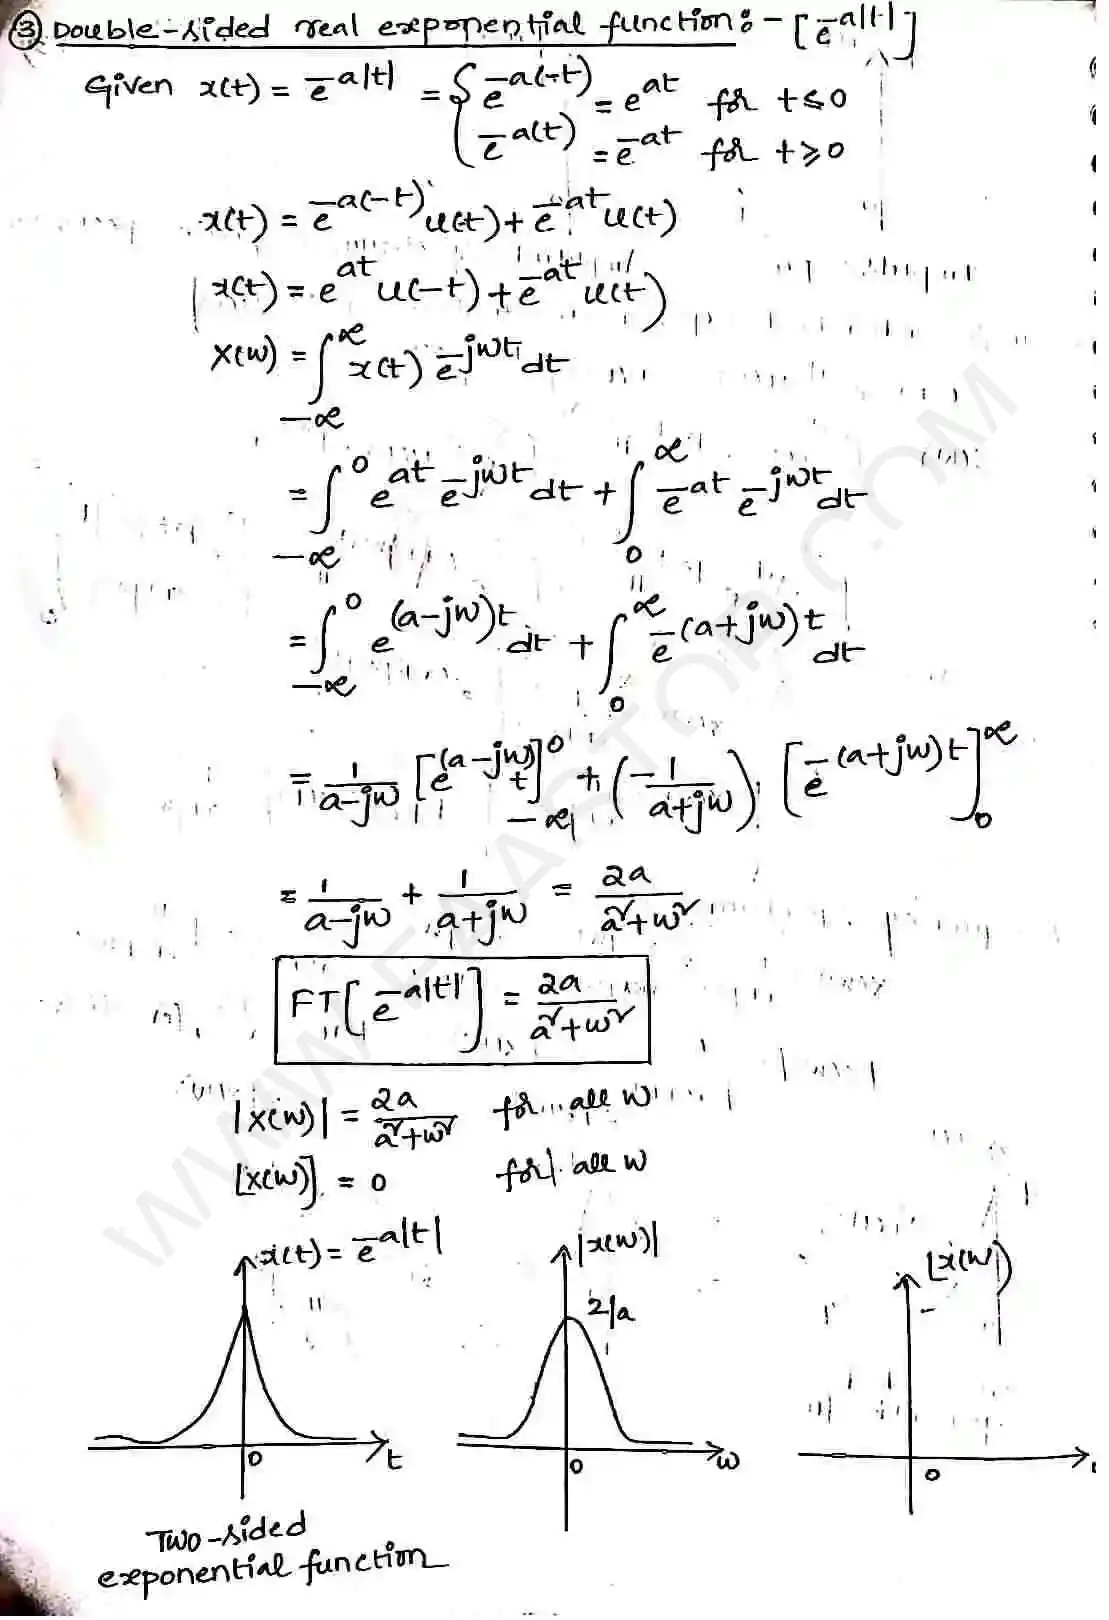 ③ Double-sided real exponential function:- [e^-a|t|]
Given x(t) = e^-a|t| = { e^-a(-t) = e^at for t ≤ 0
e^-a(t) = e^-at for t ≥ 0
x(t) = e^-a(-t) u(-t) + e^-at u(t)
x(t) = e^at u(-t) + e^-at u(t)
X(w) = ∫_-∞^∞ x(t) e^-jwt dt
= ∫_-∞^0 e^at e^-jwt dt + ∫_0^∞ e^-at e^-jwt dt
= ∫_-∞^0 e^(a-jw)t dt + ∫_0^∞ e^-(a+jw)t dt
= 1/(a-jw) [e^(a-jw)t]_-∞^0 + (-1/(a+jw)) [e^-(a+jw)t]_0^∞
= 1/(a-jw) + 1/(a+jw) = 2a/(a²+w²)
FT[e^-a|t|] = 2a/(a²+w²)
|X(w)| = 2a/(a²+w²) for all w
⌊X(w)⌋ = 0 for all w
x(t) = e^-a|t| |x(w)| ⌊x(w)
2/a
0 t 0 w 0
Two-sided
exponential function
WWW.FAASTOP.COM